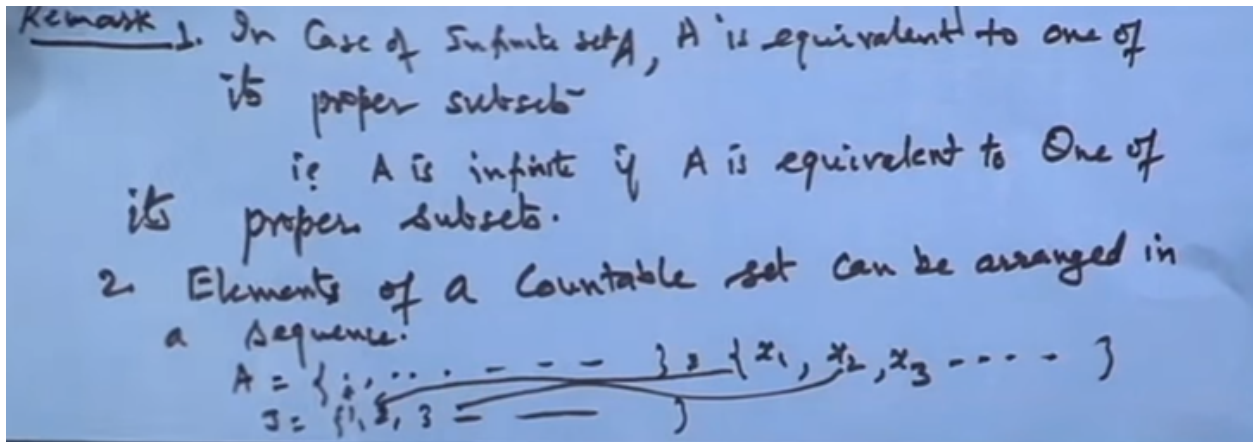 Remark 1. In Case of Infinite set A, A is equivalent to one of
its proper subsets
ie A is infinite if A is equivalent to One of
its proper subsets.
2. Elements of a Countable set can be arranged in
a sequence.
A = { . , . . . - - - } = { x1, x2, x3 - - - - }
J = { 1, 2, 3 — — }